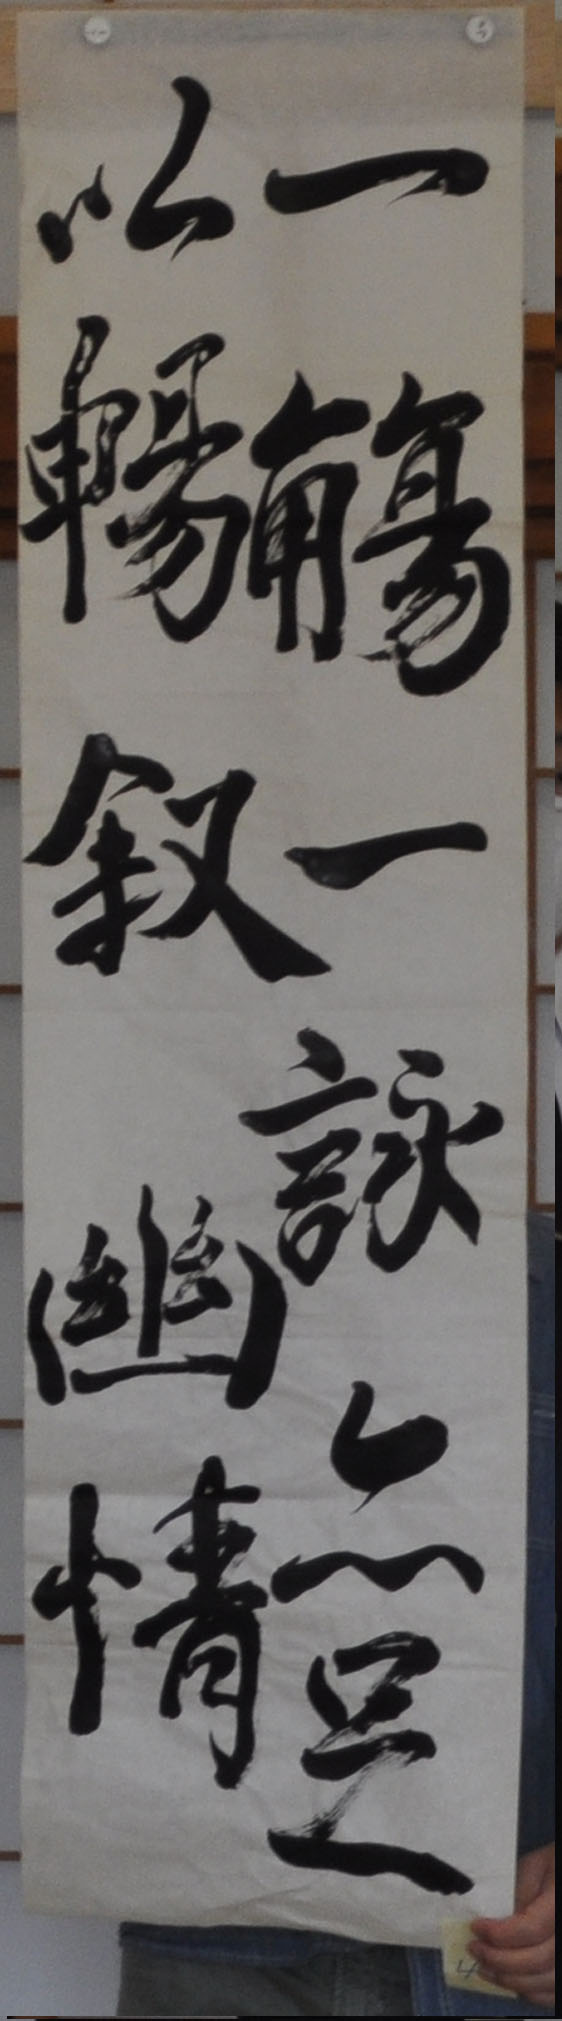 一觴一詠亦足
以暢叙幽情